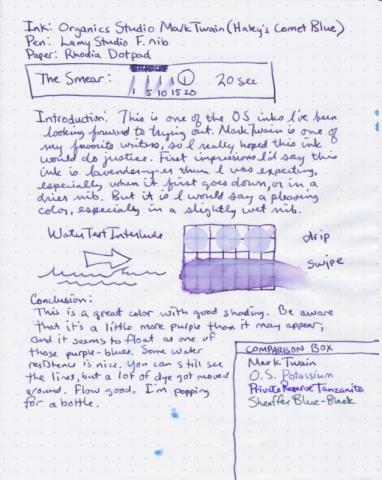 Ink: Organics Studio Mark Twain (Haley's Comet Blue)
Pen: Lamy Studio F. nib
Paper: Rhodia Dotpad
The Smear: 1 5 10 15 20 20 sec
Introduction: This is one of the OS inks I've been
looking forward to trying out. Mark Twain is one of
my favorite writers, so I really hoped this ink
would do justice. First impressions I'd say this
ink is lavender-y-er than I was expecting,
especially when it first goes down, or in a
drier nib. But it is I would say a pleasing
color, especially in a slightly wet nib.
Water Test Interlude
drip
swipe
Conclusion:
This is a great color with good shading. Be aware
that it's a little more purple than it may appear,
and it seems to float as one of
those purple-blues. Some water
resistence is nice. You can still see
the lines, but a lot of dye got moved
around. Flow good. I'm popping
for a bottle.
COMPARISON BOX
Mark Twain
O.S. Potassium
Private Reserve Tanzanite
Sheaffer Blue-Black